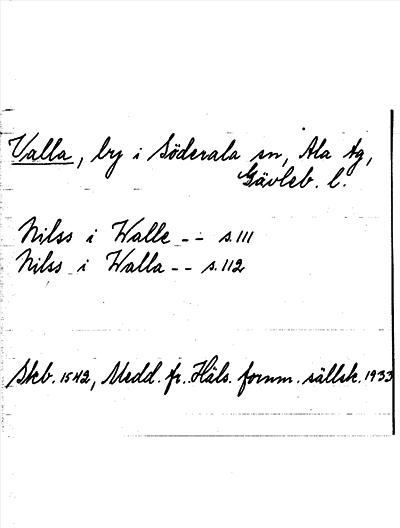 Valla, by i Söderala sn, Ala tg,
Gävleb. l.
Nilss i Walle -- s.111
Nilss i Walla -- s.112
Skb. 1542, Medd. fr. Häls. fornm. sällsk. 1933